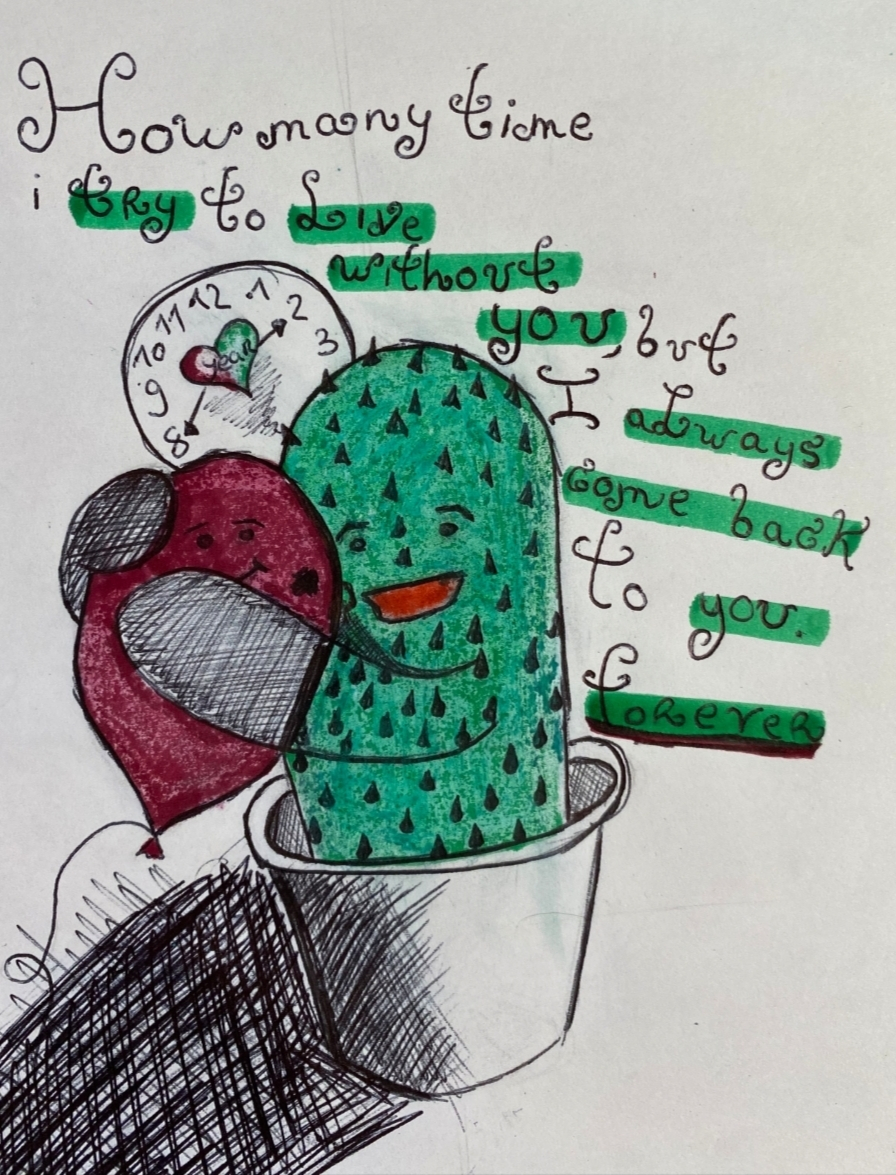 How many time
i try to live
without
you, but
I always
come back
to you.
forever
12
11
1
10
2
9
3
8
year